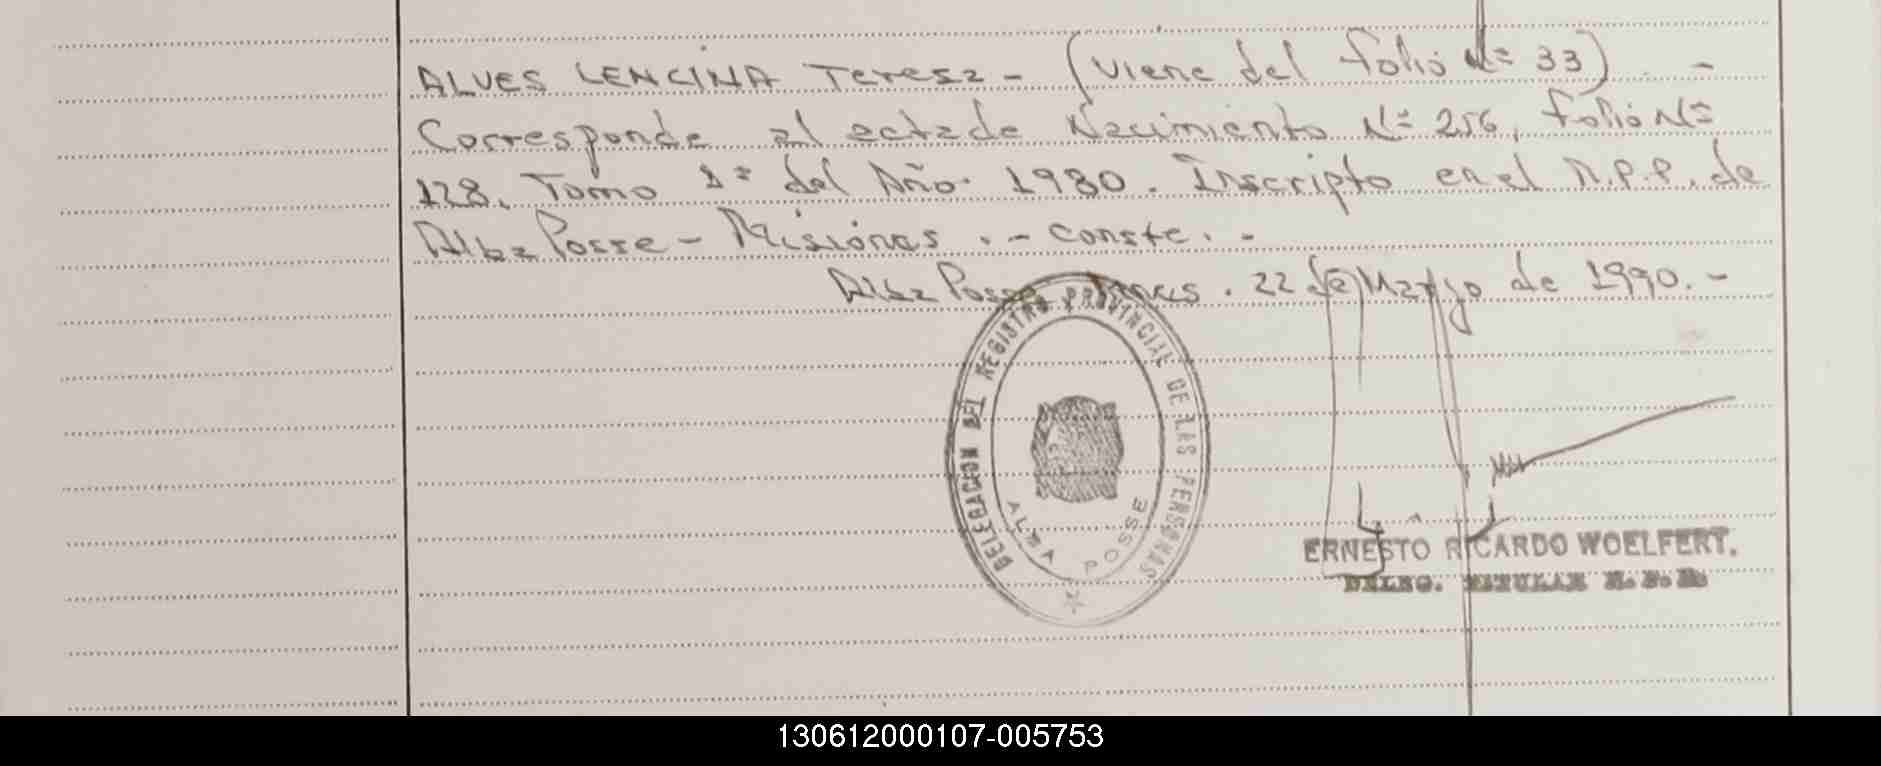 ALVES LENCINA Teresa - (viene del folio Nº 33). -
Corresponde al acta de Nacimiento Nº 256, folio Nº
128, Tomo 1º del Año 1980. Inscripto en el R.P.P. de
Alba Posse - Misiones. - conste. -
Alba Posse, Mnes. 22 de Marzo de 1990. -
DELEGACION DEL REGISTRO PROVINCIAL DE LAS PERSONAS
ALBA POSSE
ERNESTO RICARDO WOELFERT.
DELEG. TITULAR R. P. P.
130612000107-005753